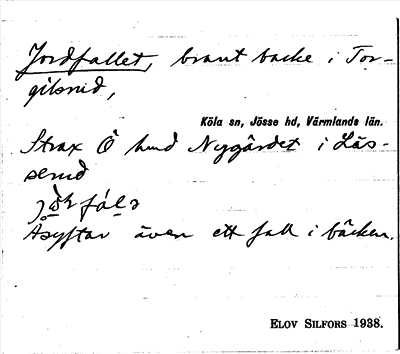 Jordfallet, brant backe i Tor-
gilsrud,
Köla sn, Jösse hd, Värmlands län.
Strax Ö om Nygärdet i Läs-
serud
Åsyftar även ett fall i bäcken.
ELOV SILFORS 1938.